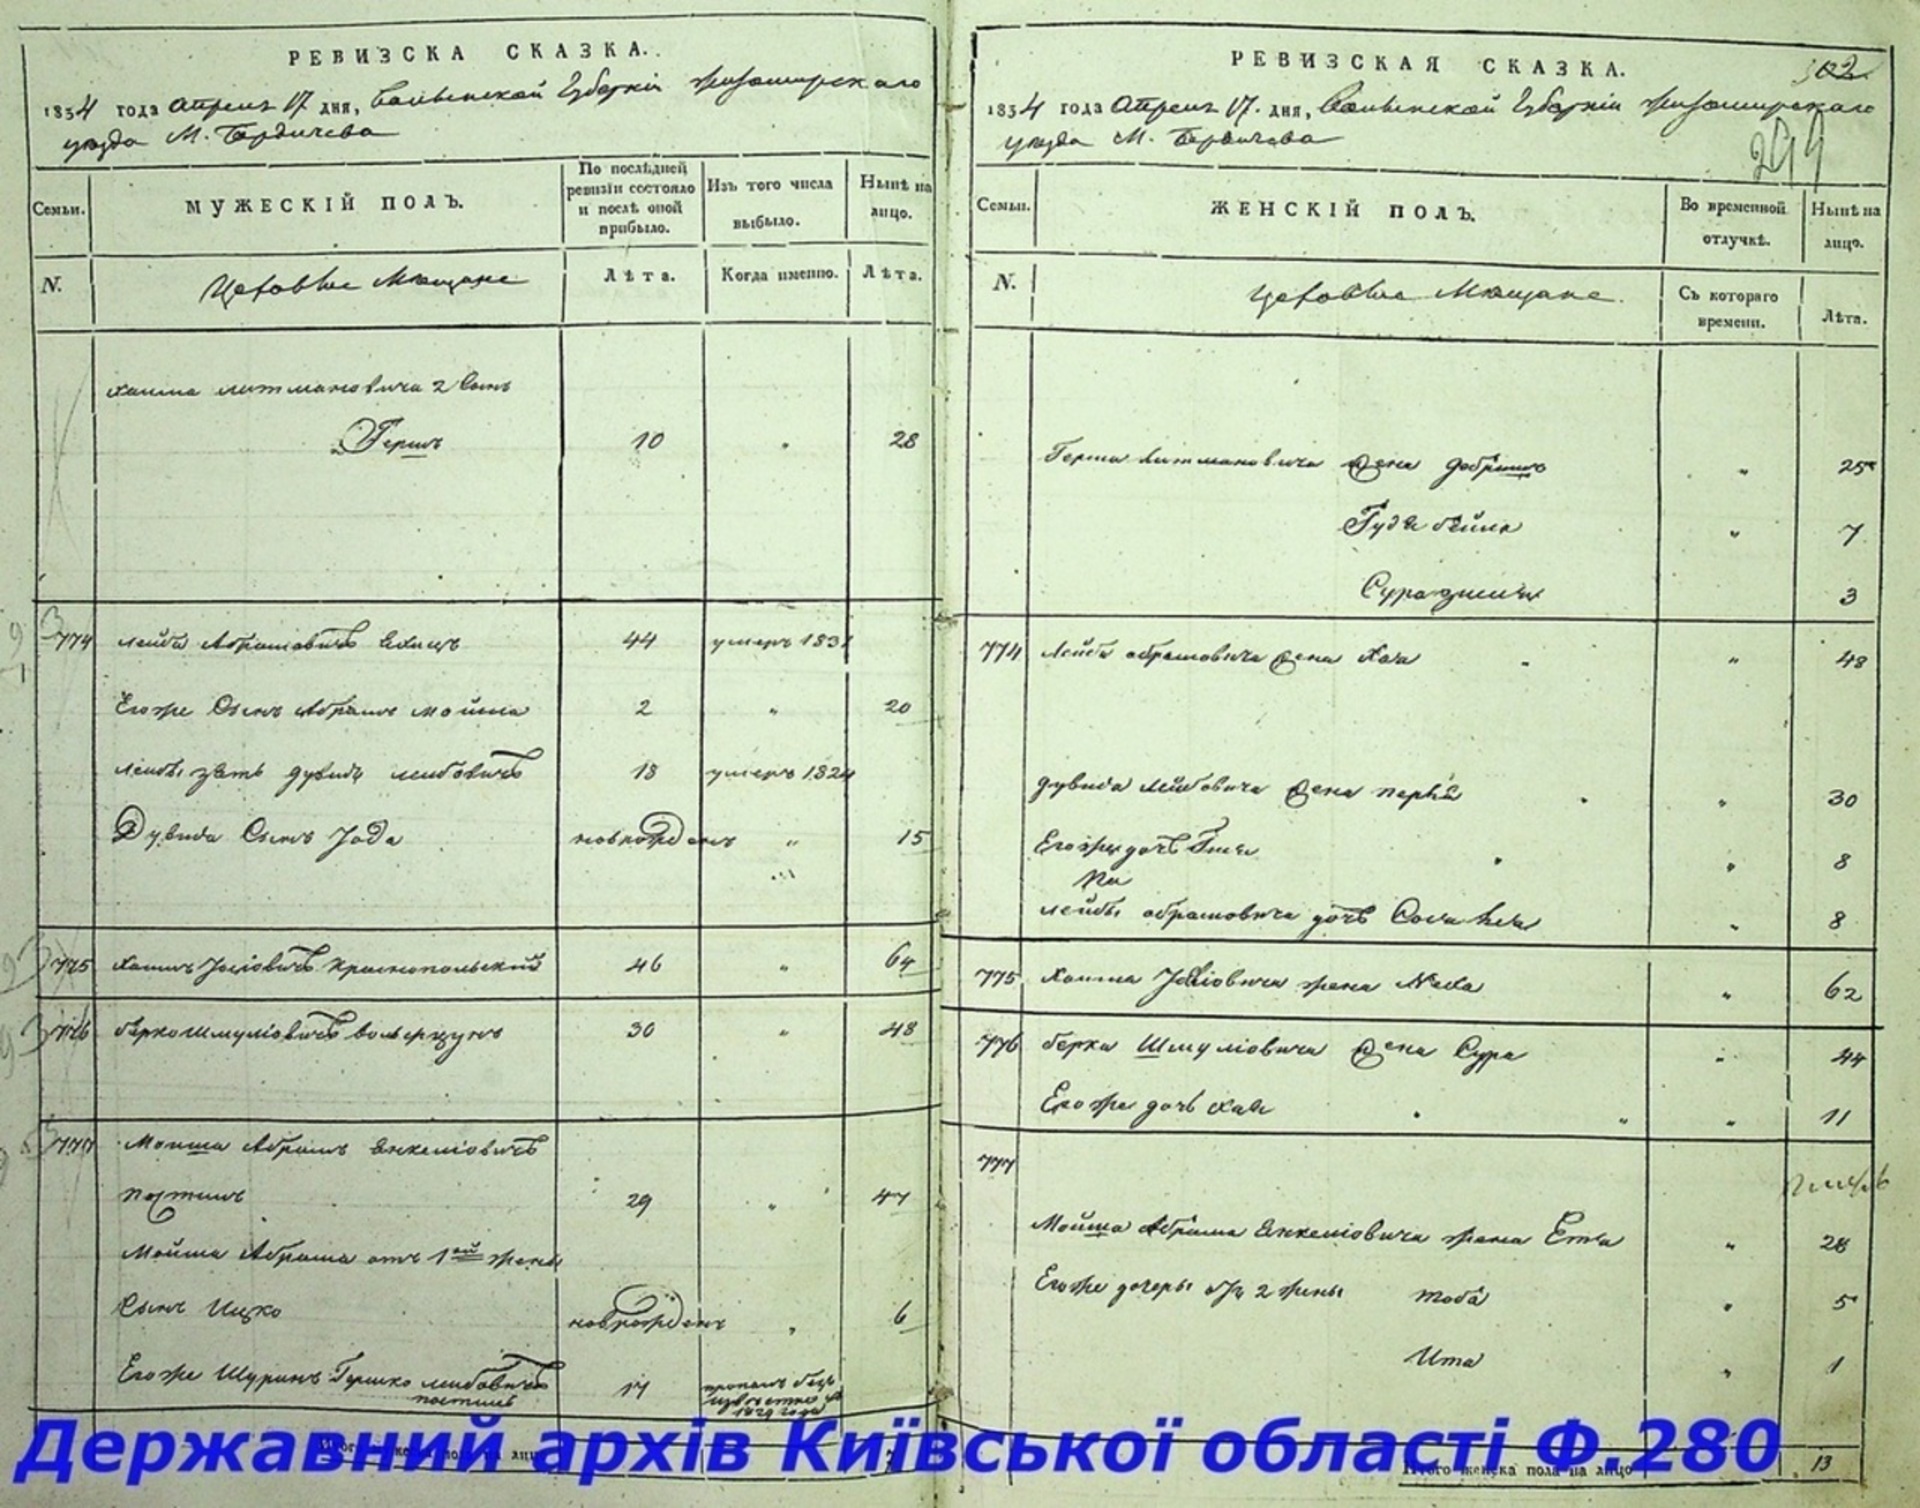 РЕВИЗСКА СКАЗКА.
1834 года Апреля 17 дня, Волынской Губерніи Житомирского
уезда М. Бердичева
Семьи.
МУЖЕСКІЙ ПОЛЪ.
По послѣдней ревизіи состояло и послѣ оной прибыло.
Изъ того числа выбыло.
Нынѣ на лицо.
N.
Цеховые Мещане
Лѣта.
Когда именно.
Лѣта.
Хаима Литмановича 2 Сынъ
Гершъ 10 " 28
774 Лейба Абрамовичъ 44 умеръ 1831
Егоже Сынъ Абрамъ Мойша 2 " 20
Лейбы зять Дувидъ Лейбовичъ 18 умеръ 1824
Дувида Сынъ новорожденъ " 15
775 Хаимъ Іосіовичъ Краснопольскій 46 " 64
776 Берко Шмуліовичъ 30 " 48
777 Мойша Абрамъ Янкеліовичъ
29 " 47
Мойша Абрама отъ 1ой жены
Сынъ Ицко новорожденъ " 6
Егоже Шуринъ Гершко Лейбовичъ 17 пропалъ безъ
известно
1829 года
РЕВИЗСКАЯ СКАЗКА.
302
299
1834 года Апреля 17. дня, Волынской Губерніи Житомирского
уезда М. Бердичева
Семьи.
ЖЕНСКІЙ ПОЛЪ.
Во временной отлучкѣ.
Нынѣ на лицо.
N.
Цеховые Мещане.
Съ котораго времени.
Лѣта.
Герша Литмановича жена Добрышъ " 25
Гудя Бейла " 7
Сура " 3
774 Лейбы Абрамовича жена Хая " 48
Дувида Лейбовича жена Перля " 30
Егоже дочь " 8
Лейбы Абрамовича дочь " 8
775 Хаима Іосіовича жена " 62
776 Берка Шмуліовича жена Сура " 44
Егоже дочь Хая " 11
777
Мойша Абрама Янкеліовича жена " 28
Егоже дочери отъ 2 жены Тоба " 5
Ита " 1
Итого женска пола на лицо 13
Державний архів Київської області Ф.280